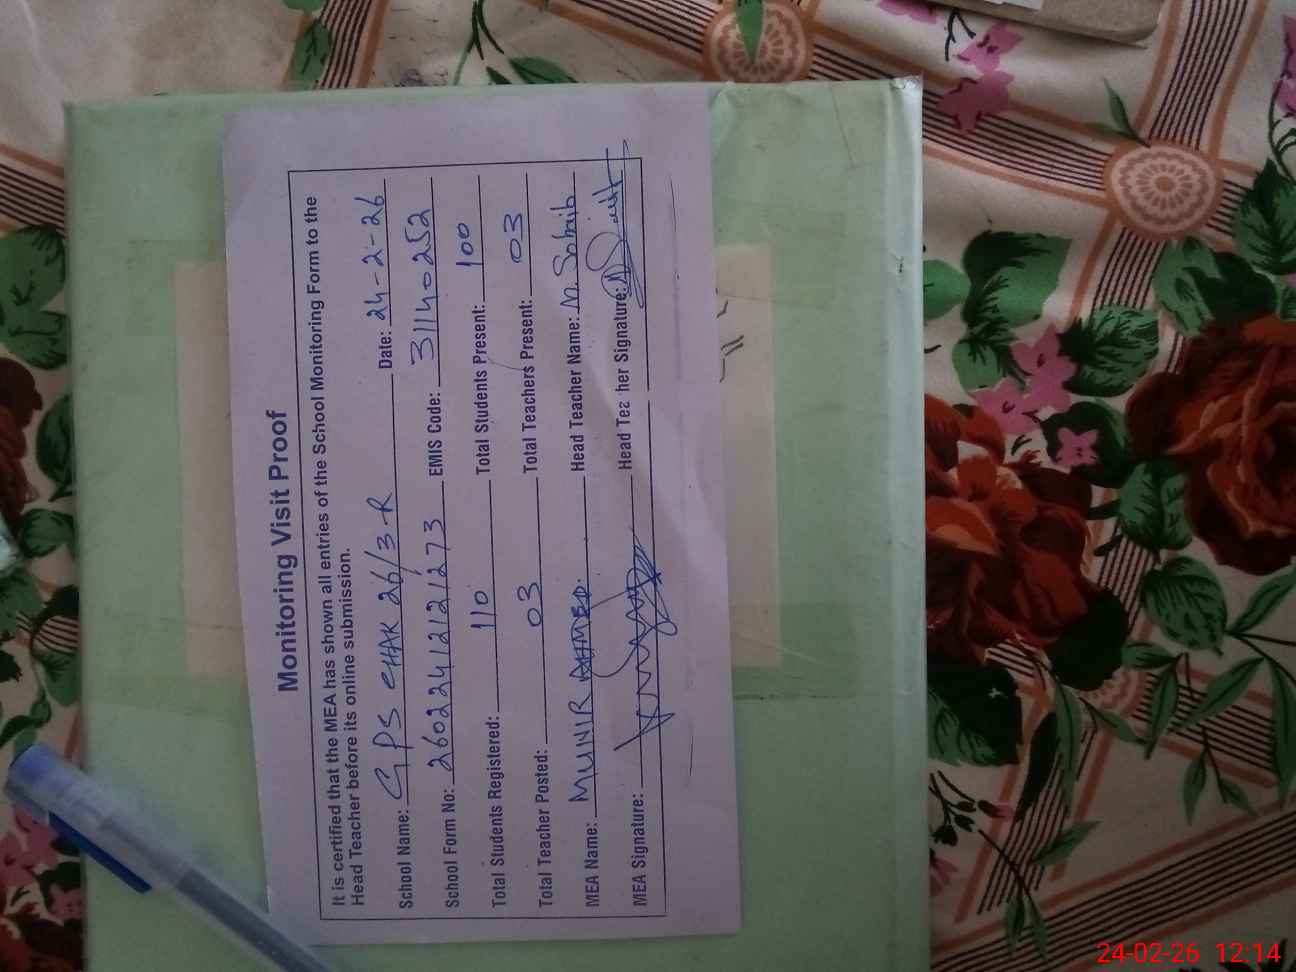 Monitoring Visit Proof
It is certified that the MEA has shown all entries of the School Monitoring Form to the
Head Teacher before its online submission.
School Name: GPS CHAK 26/3-R Date: 24-2-26
School Form No: 26022412121273 EMIS Code: 31140252
Total Students Registered: 110 Total Students Present: 100
Total Teacher Posted: 03 Total Teachers Present: 03
MEA Name: MUNIR AHMED. Head Teacher Name: M. Sohaib
MEA Signature: Head Teacher Signature:
24-02-26 12:14